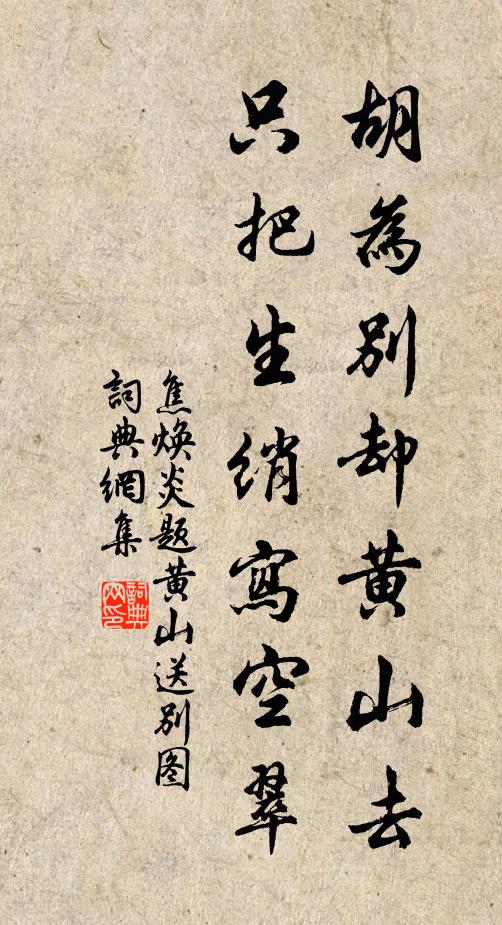 胡為別却黄山去
只把生綃寫空翠
焦焕炎题黄山送别图
詞典網集
詞典網印